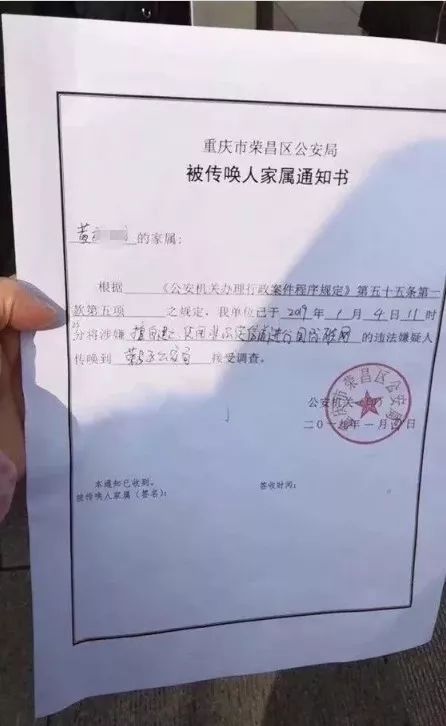 重庆市荣昌区公安局
被传唤人家属通知书
黄 的家属:
根据 《公安机关办理行政案件程序规定》第五十五条第一
款第五项 之规定,我单位已于2019年1月4日11时
分将涉嫌擅自建立、使用非法定信道进行国际联网的违法嫌疑人
传唤到 荣昌区公安局 接受调查。
公安机关
二〇一九年一月 日
本通知已收到。
被传唤人家属(签名): 签收时间:
重庆市荣昌区公安局